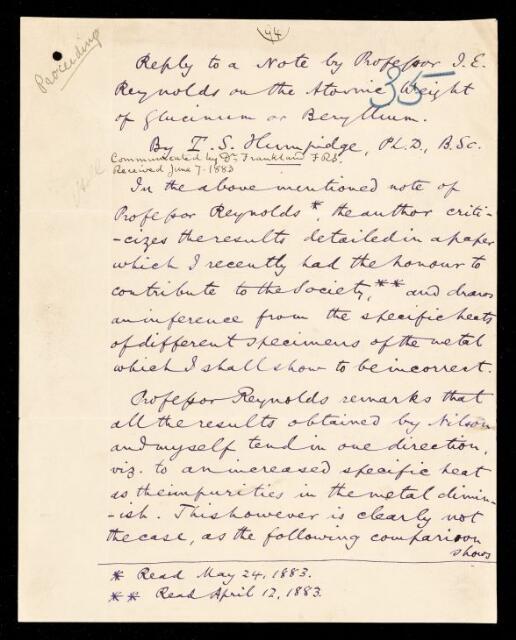 94
Proceeding
35
Reply to a Note by Professor J. E.
Reynolds on the Atomic Weight
of Glucinum or Beryllium.
By T. S. Humpidge, Ph.D., B.Sc.
Communicated by Dr Frankland F.R.S.
Received June 7. 1883
In the above mentioned note of
Professor Reynolds *, the author criti-
-cizes the results detailed in a paper
which I recently had the honour to
contribute to the Society, ** and draws
an inference from the specific heats
of different specimens of the metal
which I shall show to be incorrect.
Professor Reynolds remarks that
all the results obtained by Nilson
and myself tend in one direction,
viz. to an increased specific heat
as the impurities in the metal dimin-
-ish. This however is clearly not
the case, as the following comparison
shows
* Read May 24, 1883.
** Read April 12, 1883.